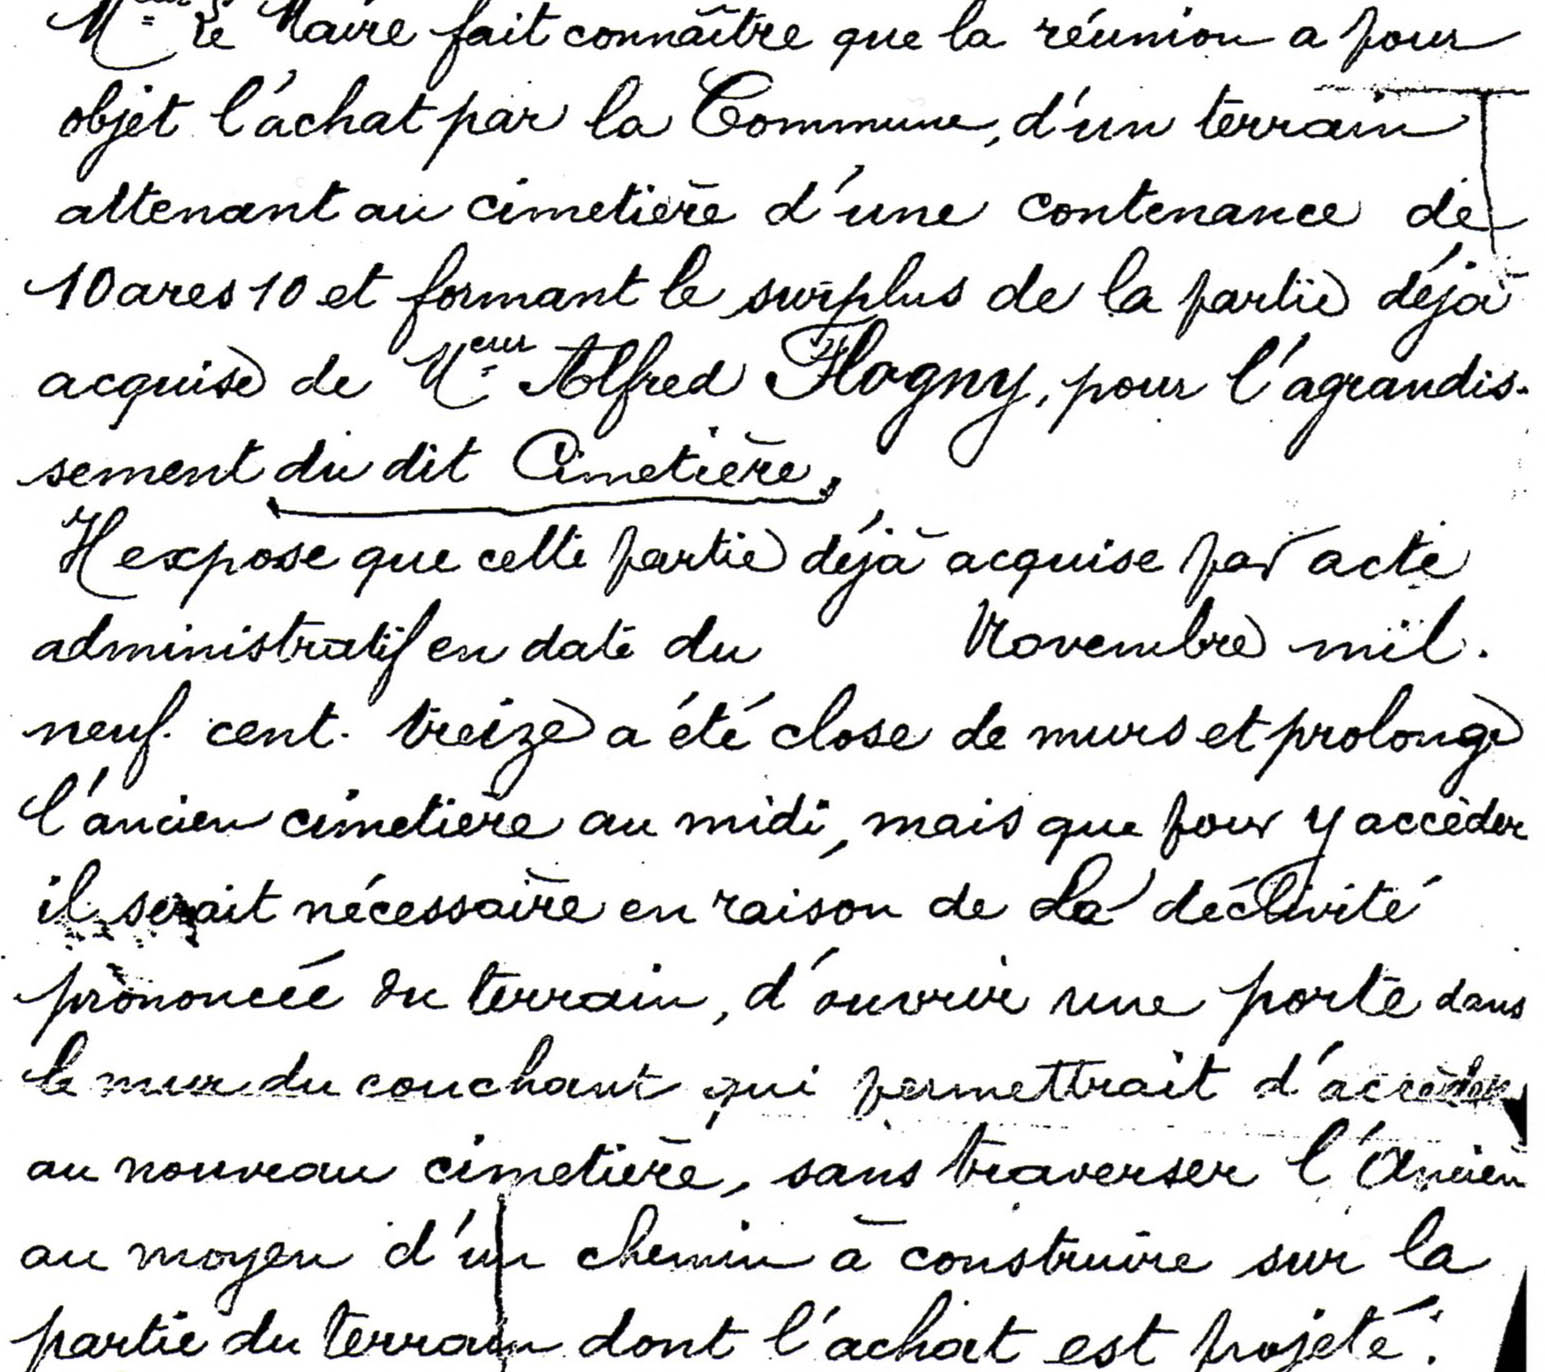 Meur le Maire fait connaître que la réunion a pour
objet l'achat par la Commune, d'un terrain
attenant au cimetière d'une contenance de
10 ares 10 et formant le surplus de la partie déjà
acquise de Meur Alfred Flogny, pour l'agrandis-
sement du dit Cimetière.
Il expose que cette partie déjà acquise par acte
administratif en date du Novembre mil.
neuf. cent. treize a été close de murs et prolonge
l'ancien cimetière au midi, mais que pour y accéder
il serait nécessaire en raison de la déclivité
prononcée du terrain, d'ouvrir une porte dans
le mur du couchant qui permettrait d'accéder
au nouveau cimetière, sans traverser l'Ancien
au moyen d'un chemin à construire sur la
partie du terrain dont l'achat est projeté.